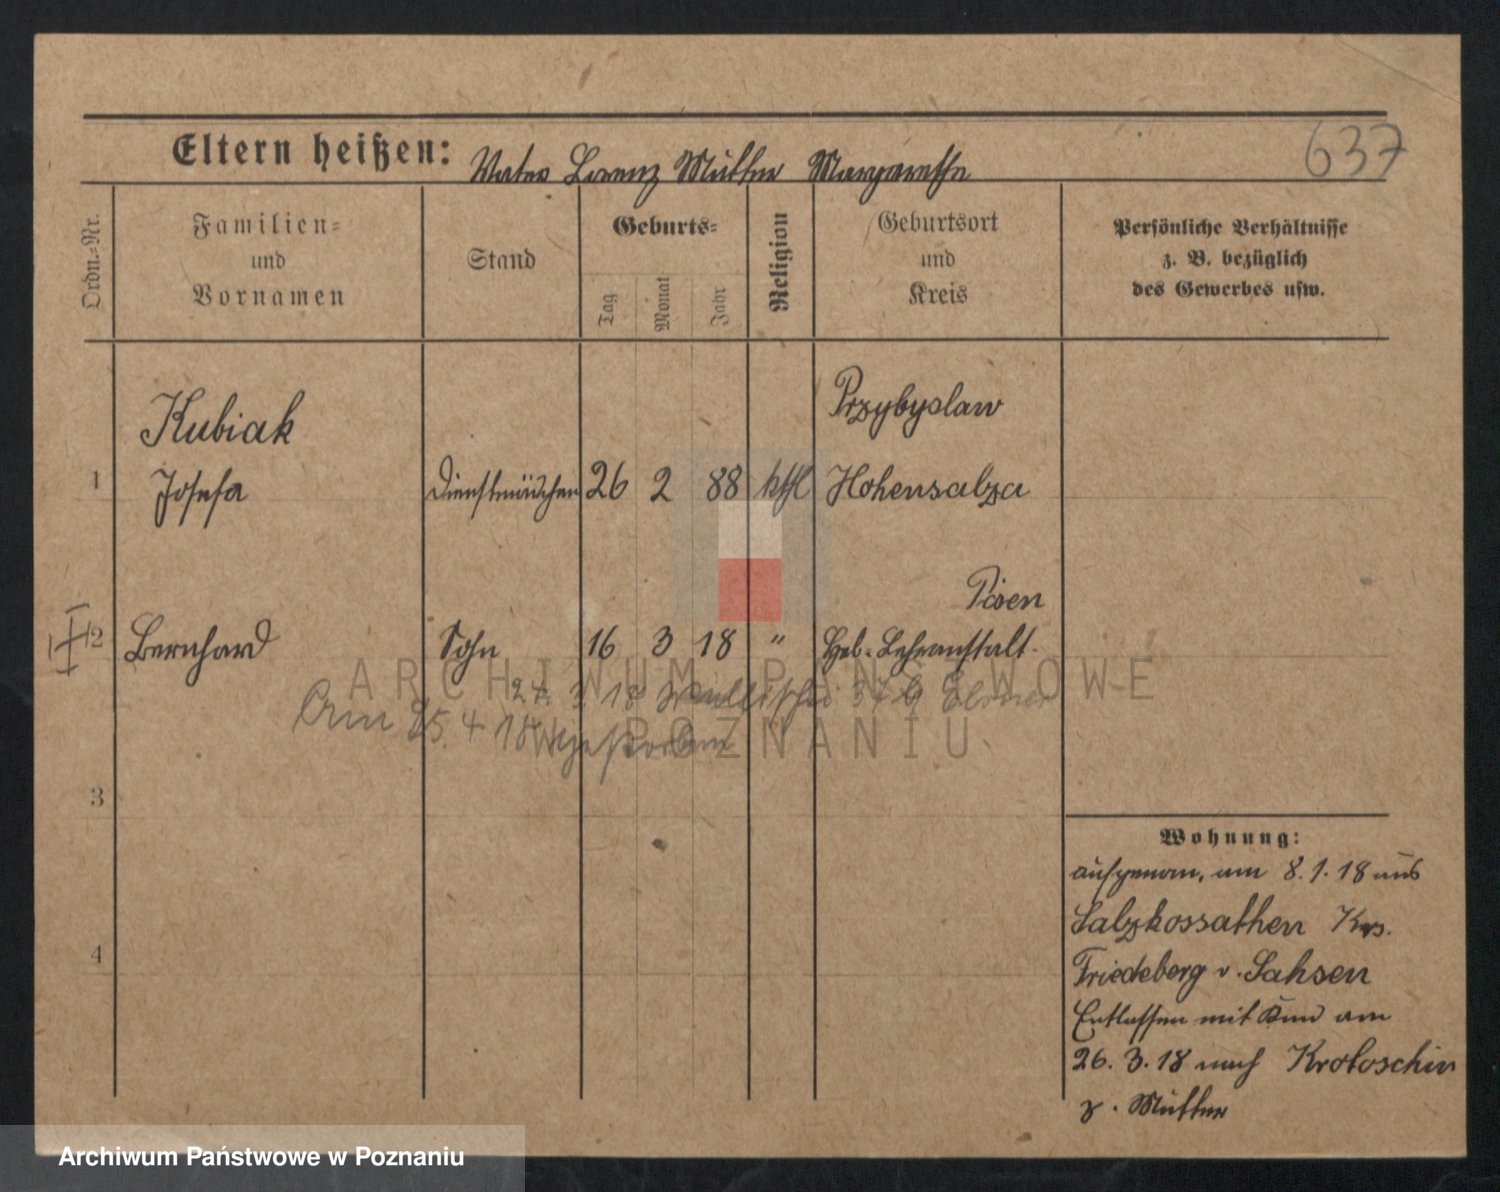 637
Eltern heißen: Vater Lorenz Mutter Margarethe
Ordn.-Nr.
Familien-
und
Vornamen
Stand
Geburts-
Tag
Monat
Jahr
Religion
Geburtsort
und
Kreis
Persönliche Verhältnisse
z. B. bezüglich
des Gewerbes usw.
Kubiak
Przybyslaw
1 Josefa Dienstmädchen 26 2 88 kthl Hohensalza
Posen
2 Bernhard Sohn 16 3 18 " Heb. Lehranstalt.
27. 3 18
Am 25. 4 18 gestorben
3
4
Wohnung:
aufgenom. am 8.1.18 aus
Salzkossathen Krs.
Friedeberg v. Sahsen
Entlassen mit Kind am
26.3.18 nach Krotoschin
z. Mutter
ARCHIWUM PAŃSTWOWE
W POZNANIU
Archiwum Państwowe w Poznaniu